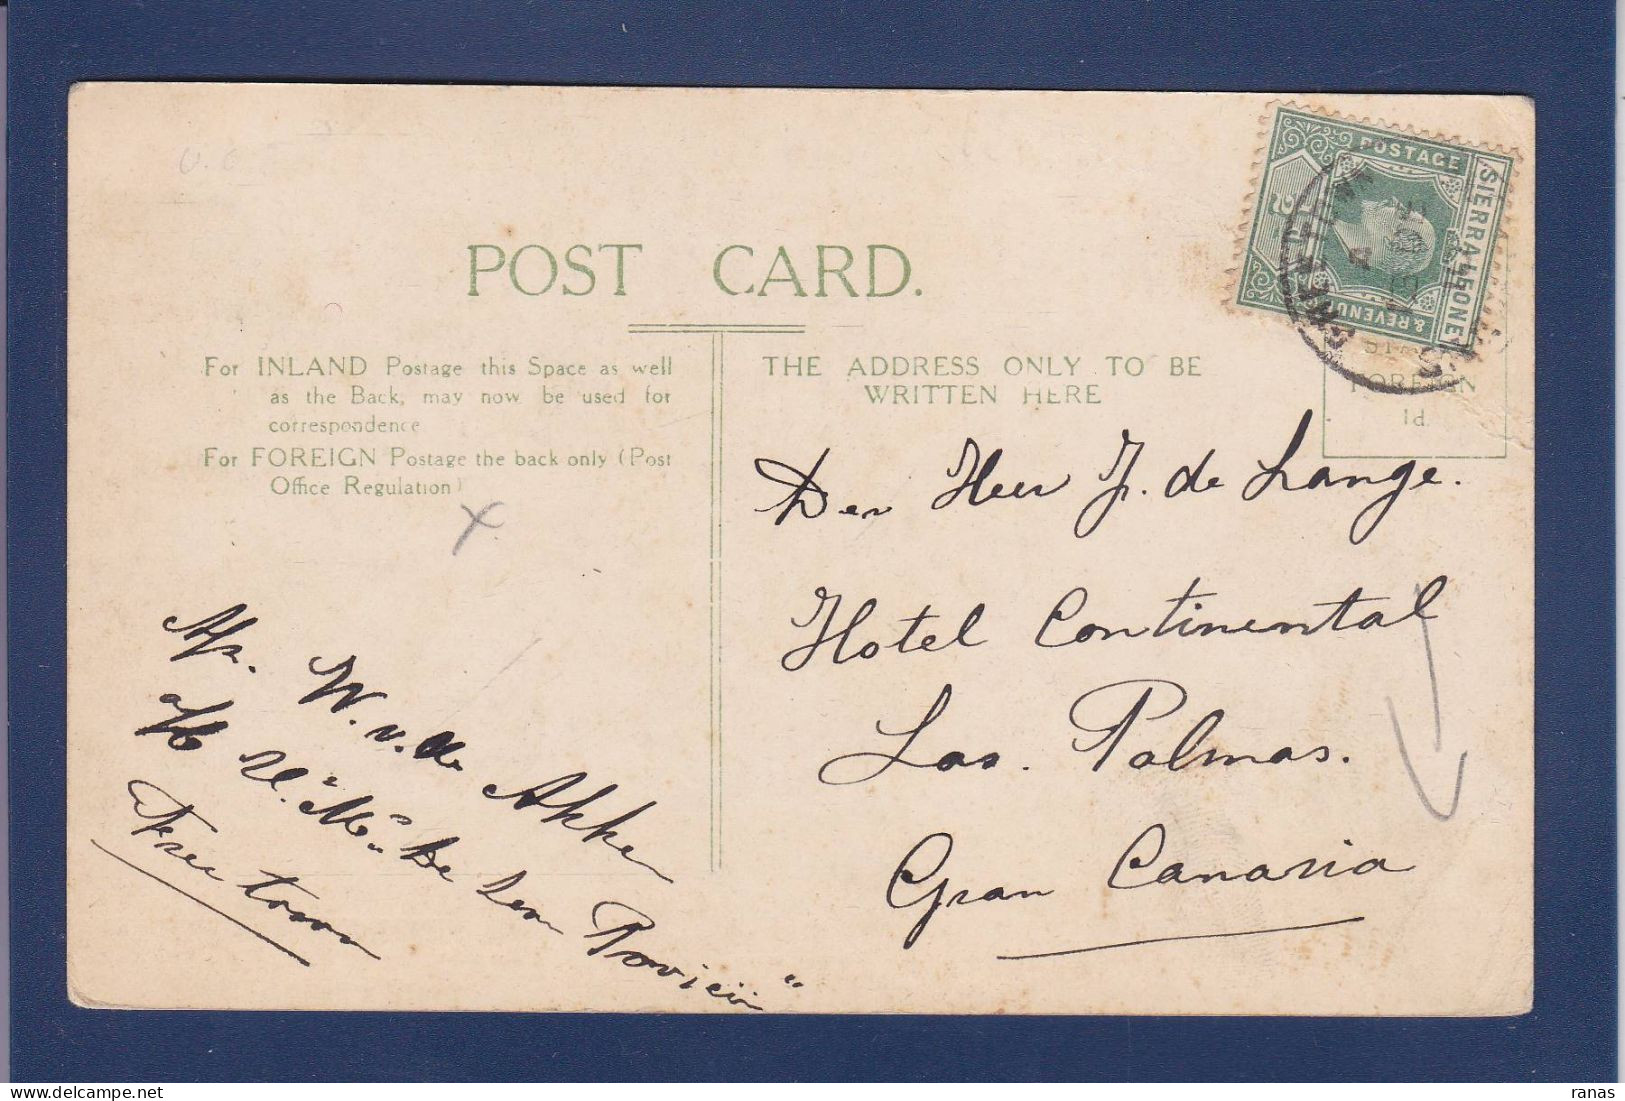 POST CARD.
For INLAND Postage this Space as well
as the Back, may now be used for
correspondence
For FOREIGN Postage the back only (Post
Office Regulation)
THE ADDRESS ONLY TO BE
WRITTEN HERE
POSTAGE
SIERRA LEONE
& REVENUE
FOREIGN
1d.
Den Heer J. de Lange.
Hotel Continental
Las. Palmas.
Gran Canaria
W. v. d. Akker
Free town
ranas